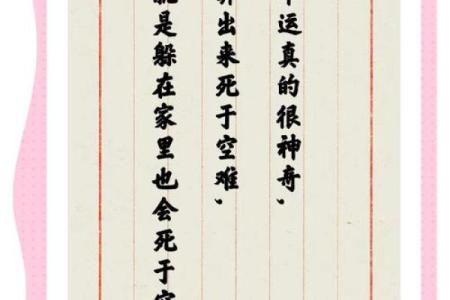 运真的很神奇，
出来死于空难，
是躲在家里也会死于